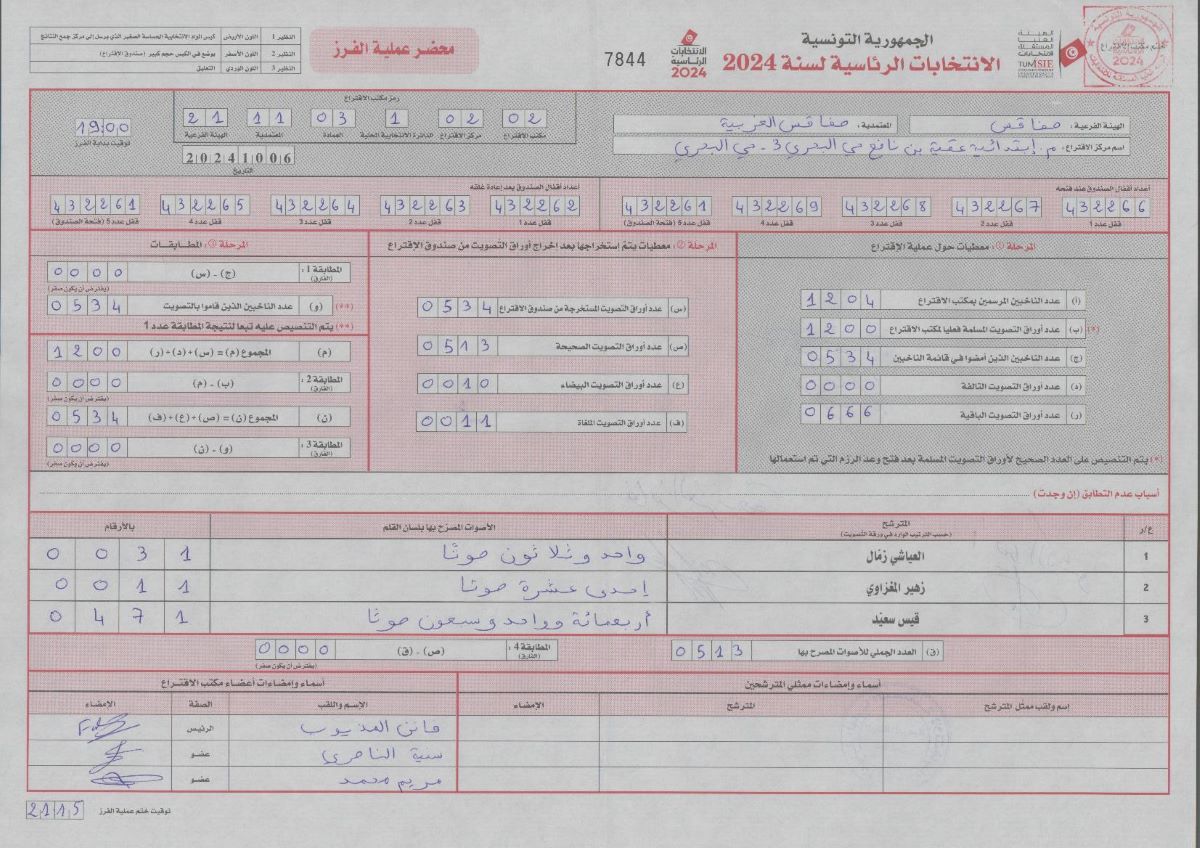 الجمهورية التونسية
الانتخابات الرئاسية لسنة 2024
الهيئة العليا المستقلة للانتخابات
TUNISIE
الانتخابات الرئاسية 2024
7844
محضر عملية الفرز
النظير 1 اللون الأبيض كيس المواد الانتخابية الحساسة الصغير الذي يرسل إلى مركز جمع النتائج
النظير 2 اللون الأصفر يوضع في الكيس حجم كبير (صندوق الاقتراع)
النظير 3 اللون الوردي التعليق
ختم مكتب الاقتراع
الهيئة الفرعية : صفاقس
المعتمدية : صفاقس الغربية
اسم مركز الاقتراع : م. إبتدائية عقبة بن نافع حي البحري 3 - حي البحري
رمز مكتب الاقتراع
02 02 1 03 11 21
مكتب الاقتراع مركز الاقتراع الدائرة الانتخابية المحلية العمادة المعتمدية الهيئة الفرعية
20241006
التاريخ
19:00
توقيت بداية الفرز
أعداد أقفال الصندوق عند فتحه
432266 432267 432268 432269 432261
قفل عدد 1 قفل عدد 2 قفل عدد 3 قفل عدد 4 قفل عدد 5 (فتحة الصندوق)
أعداد أقفال الصندوق بعد إعادة غلقه
432262 432263 432264 432265 432261
قفل عدد 1 قفل عدد 2 قفل عدد 3 قفل عدد 4 قفل عدد 5 (فتحة الصندوق)
المرحلة ①: معطيات حول عملية الإقتراع
(أ) عدد الناخبين المرسمين بمكتب الاقتراع 1204
(*) (ب) عدد أوراق التصويت المسلمة فعليا لمكتب الاقتراع 1200
(ج) عدد الناخبين الذين أمضوا في قائمة الناخبين 0534
(د) عدد أوراق التصويت التالفة 0000
(ر) عدد أوراق التصويت الباقية 0666
(*) يتم التنصيص على العدد الصحيح لأوراق التصويت المسلمة بعد فتح وعد الرزم التي تم استعمالها
المرحلة ②: معطيات يتم إستخراجها بعد إخراج أوراق التصويت من صندوق الإقتراع
(س) عدد أوراق التصويت المستخرجة من صندوق الاقتراع 0534
(ص) عدد أوراق التصويت الصحيحة 0513
(ع) عدد أوراق التصويت البيضاء 0010
(ف) عدد أوراق التصويت الملغاة 0011
المرحلة ③: المطابقات
المطابقة 1 : (الفارق) (ج) - (س) 0000
(يفترض أن يكون صفر)
(**) (و) عدد الناخبين الذين قاموا بالتصويت 0534
(**) يتم التنصيص عليه تبعا لنتيجة المطابقة عدد 1
(م) المجموع (م) = (س)+(د)+(ر) 1200
المطابقة 2 : (الفارق) (ب) - (م) 0000
(يفترض أن يكون صفر)
(ن) المجموع (ن) = (ص)+(ع)+(ف) 0534
المطابقة 3 : (الفارق) (و) - (ن) 0000
(يفترض أن يكون صفر)
أسباب عدم التطابق (إن وجدت)
ع/ر المترشح الأصوات المصرح بها بلسان القلم بالأرقام
(حسب الترتيب الوارد في ورقة التصويت)
1 العياشي زمّال واحد وثلاثون صوتًا 0 0 3 1
2 زهير المغزاوي إحدى عشرة صوتا 0 0 1 1
3 قيس سعيّد أربعمائة وواحد وسبعون صوتًا 0 4 7 1
(ق) العدد الجملي للأصوات المصرح بها 0513
المطابقة 4 : (الفارق) (ص) - (ق) 0000
(يفترض أن يكون صفر)
أسماء وإمضاءات ممثلي المترشحين
إسم ولقب ممثل المترشح المترشح الإمضاء
أسماء وإمضاءات أعضاء مكتب الاقتراع
الإسم واللقب الصفة الإمضاء
الرئيس
سنية الناصري عضو
مريم محمد عضو
توقيت ختم عملية الفرز 21:15